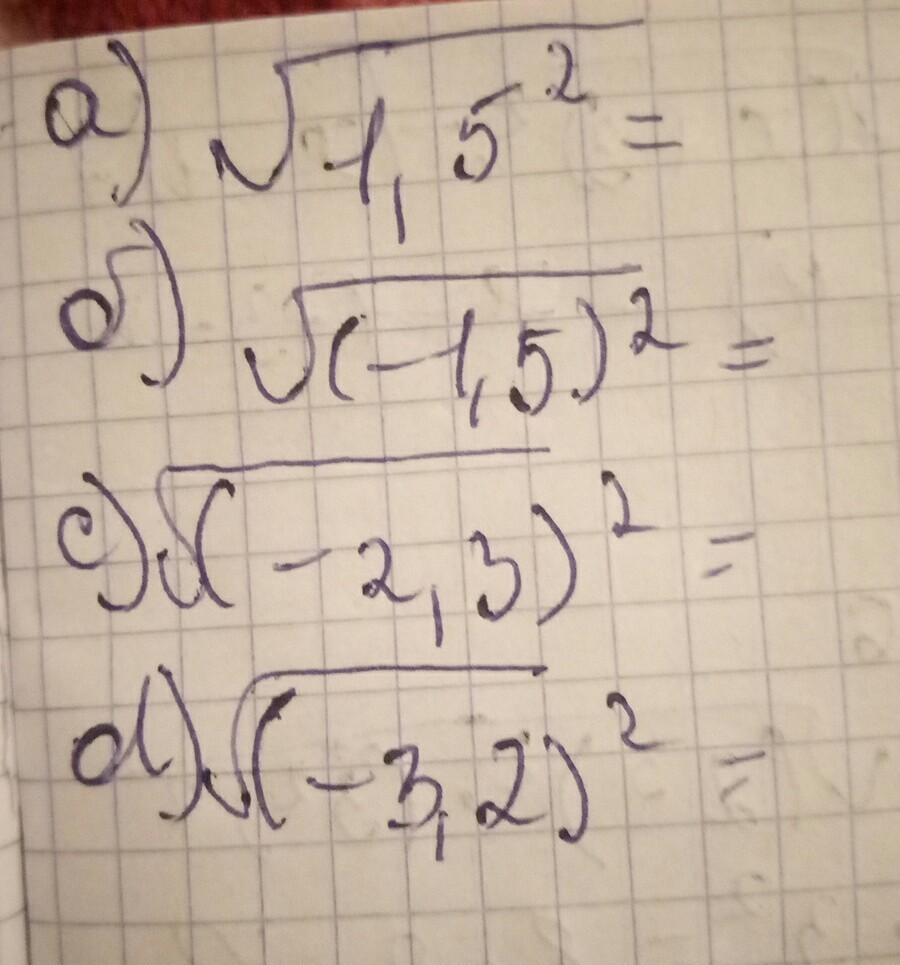 а) √1,5² =
б) √(-1,5)² =
c) √(-2,3)² =
d) √(-3,2)² =